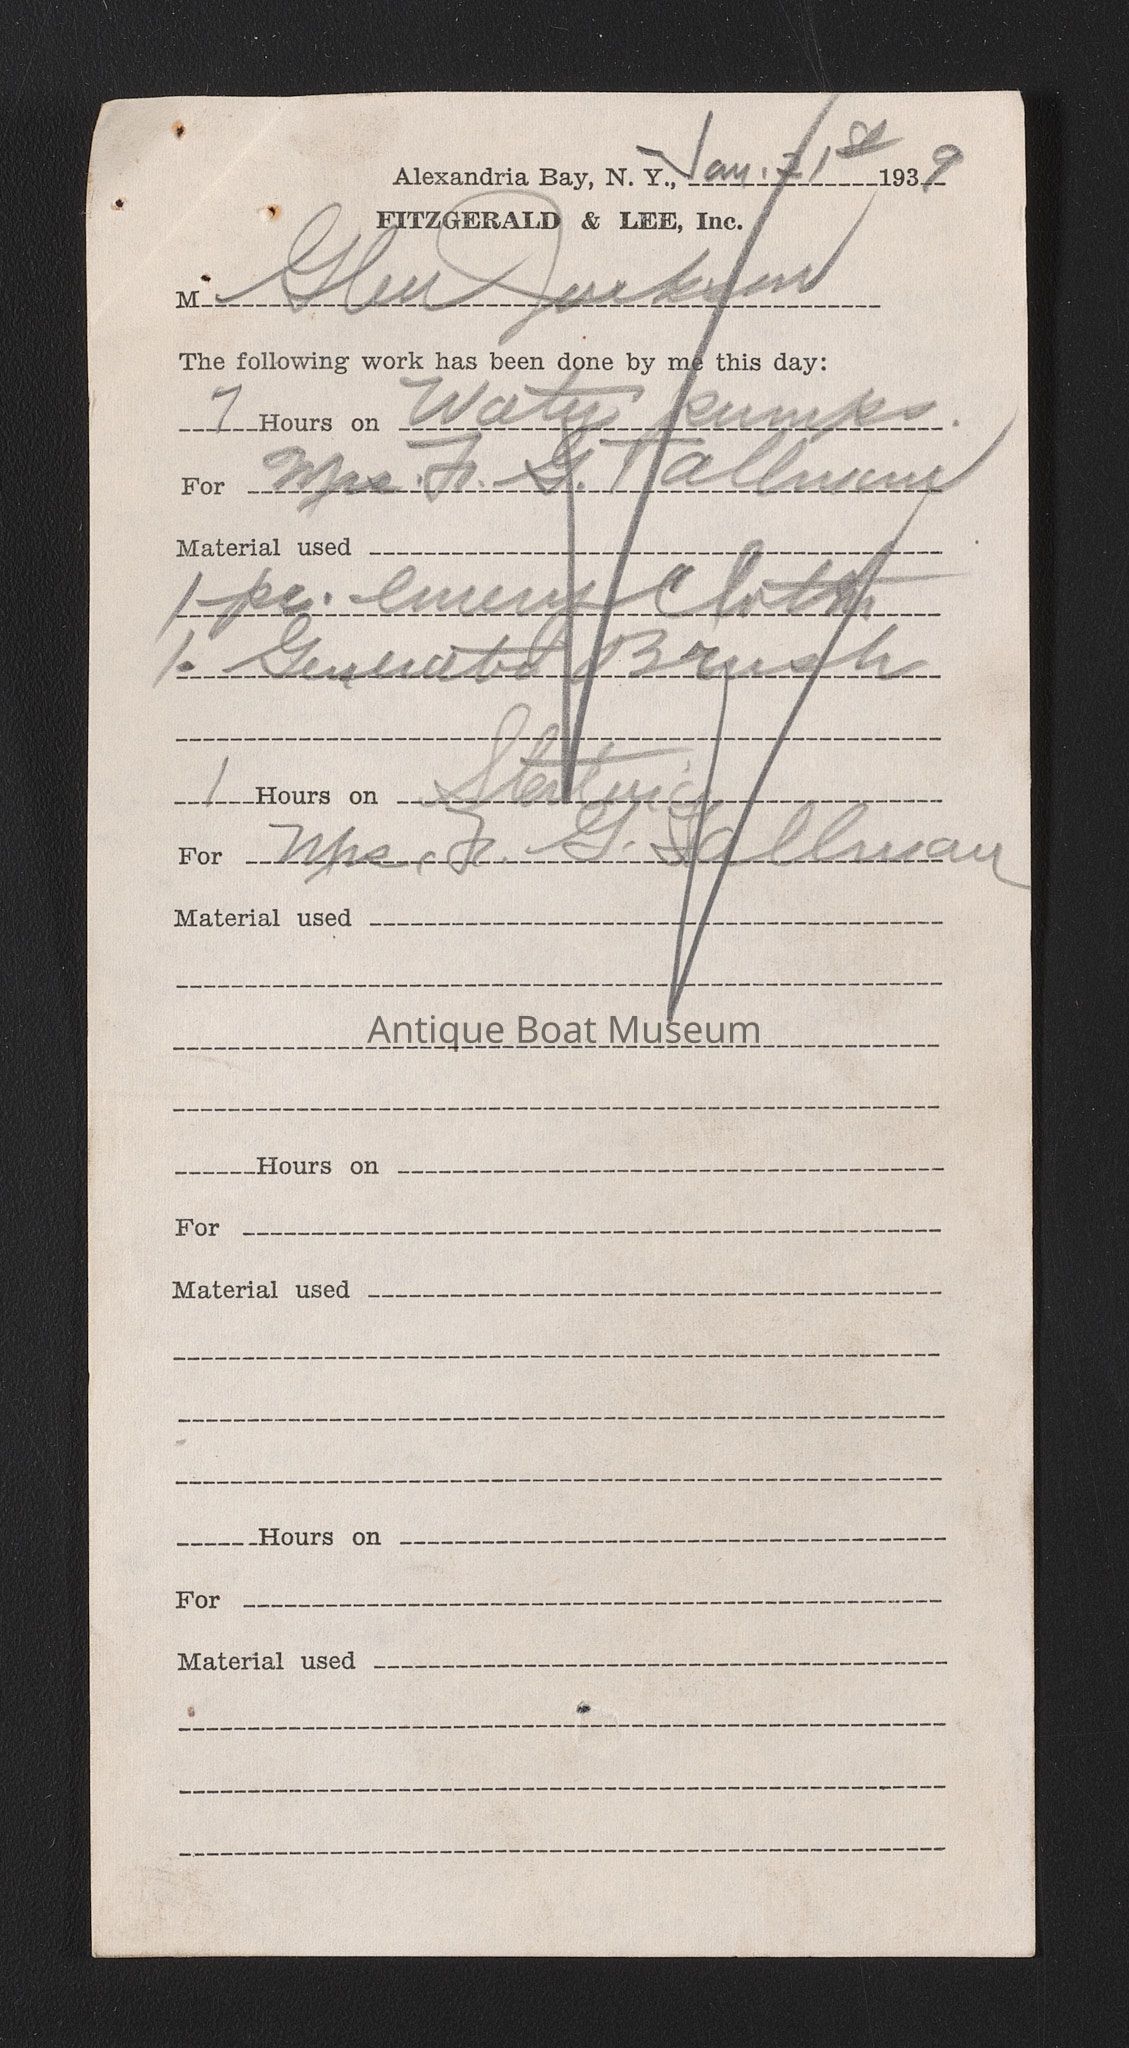 Alexandria Bay, N. Y., Jan. 21st 1939
FITZGERALD & LEE, Inc.
M Glen Jackson
The following work has been done by me this day:
7 Hours on Water pumps.
For Mrs. F. G. Tallman
Material used
1 pc. emery Cloth
1. Generator Brush
1 Hours on
For Mrs. F. G. Tallman
Material used
Antique Boat Museum
Hours on
For
Material used
Hours on
For
Material used